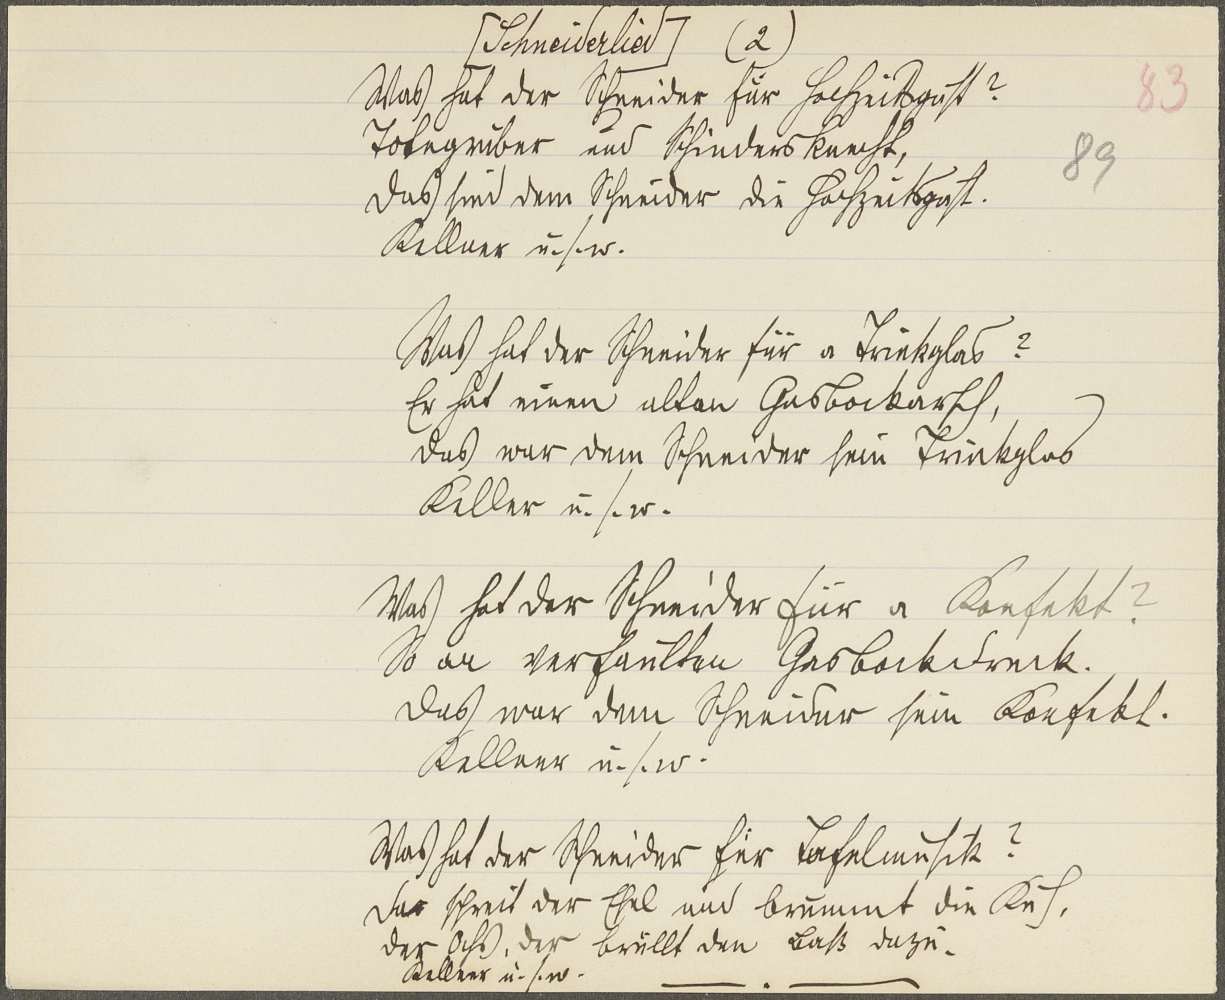 [Schneiderlied] (2)
83
Was hat der Schneider für Hochzeitsgäst?
89
Totegräber und Schindersknecht,
Das sind dem Schneider die Hochzeitsgäst.
Kellner u.s.w.
Was hat der Schneider für a Trinkglas?
Er hat einen alten Gasbockarsch,
das war dem Schneider sein Trinkglas
Keller u.s.w.
Was hat der Schneider für a Konfekt?
So an verfaulten Gasbockdreck.
Das war dem Schneider sein Konfekt.
Kellner u.s.w.
Was hat der Schneider für Tafelmusik?
Da schreit der Esel und brummt die Kuh,
der Ochs, der brüllt den Baß dazu.
Kellner u.s.w.